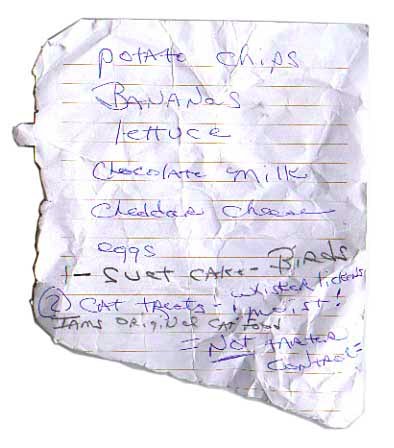 potato chips
BANANAS
lettuce
chocolate milk
cheddar cheese
eggs
1 - SUET CAKE - BIRDS
② CAT treats - whisker lickens
moist!
IAMS ORIGINAL CAT FOOD
= NOT TARTER
CONTROL =